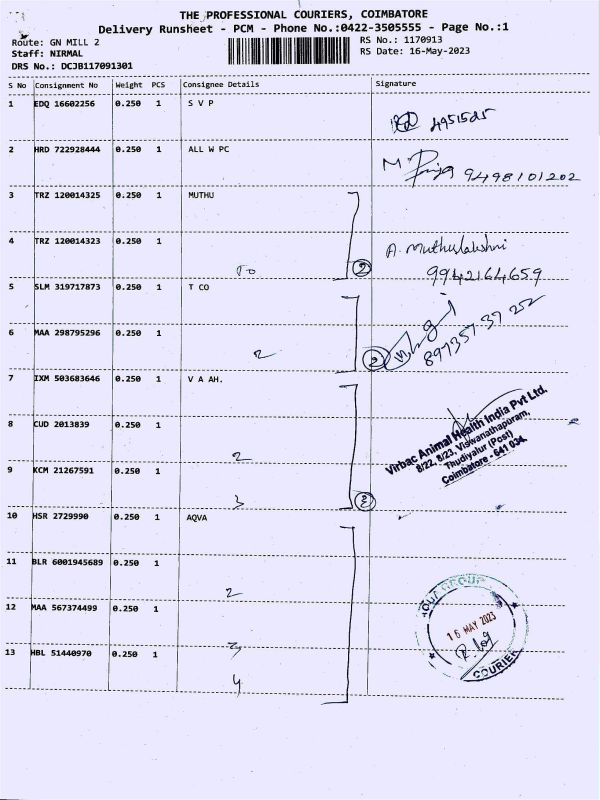 THE PROFESSIONAL COURIERS, COIMBATORE
Delivery Runsheet - PCM - Phone No.:0422-3505555 - Page No.:1
Route: GN MILL 2
Staff: NIRMAL
DRS No.: DCJB117091301
RS No.: 1170913
RS Date: 16-May-2023
S No Consignment No Weight PCS Consignee Details Signature
1 EDQ 16602256 0.250 1 S V P
2 HRD 722928444 0.250 1 ALL W PC
9498101202
3 TRZ 120014325 0.250 1 MUTHU
4 TRZ 120014323 0.250 1
To 2
A. Muthulakshmi
9942164659
5 SLM 319717873 0.250 1 T CO
6 MAA 298795296 0.250 1
2 2
89735737252
7 IXM 503683646 0.250 1 V A AH.
8 CUD 2013839 0.250 1
2
9 KCM 21267591 0.250 1
3 3
Virbac Animal Health India Pvt Ltd.
8/22, 8/23, Viswanathapuram,
Thudiyalur (Post)
Coimbatore - 641 034.
10 HSR 2729990 0.250 1 AQVA
11 BLR 6001945689 0.250 1
2
12 MAA 567374499 0.250 1
3
13 HBL 51440970 0.250 1
4
AQUA GROUP
16 MAY 2023
COURIER